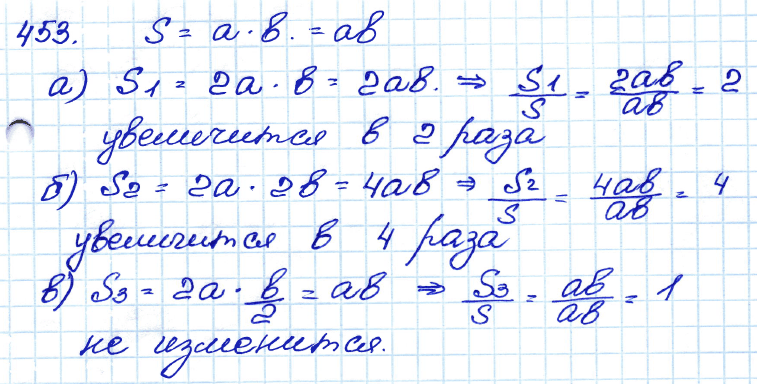 453. S = a · b. = ab
а) S1 = 2a · b = 2ab. ⇒ S1/S = 2ab/ab = 2
увеличится в 2 раза
б) S2 = 2a · 2b = 4ab ⇒ S2/S = 4ab/ab = 4
увеличится в 4 раза
в) S3 = 2a · b/2 = ab ⇒ S3/S = ab/ab = 1
не изменится.